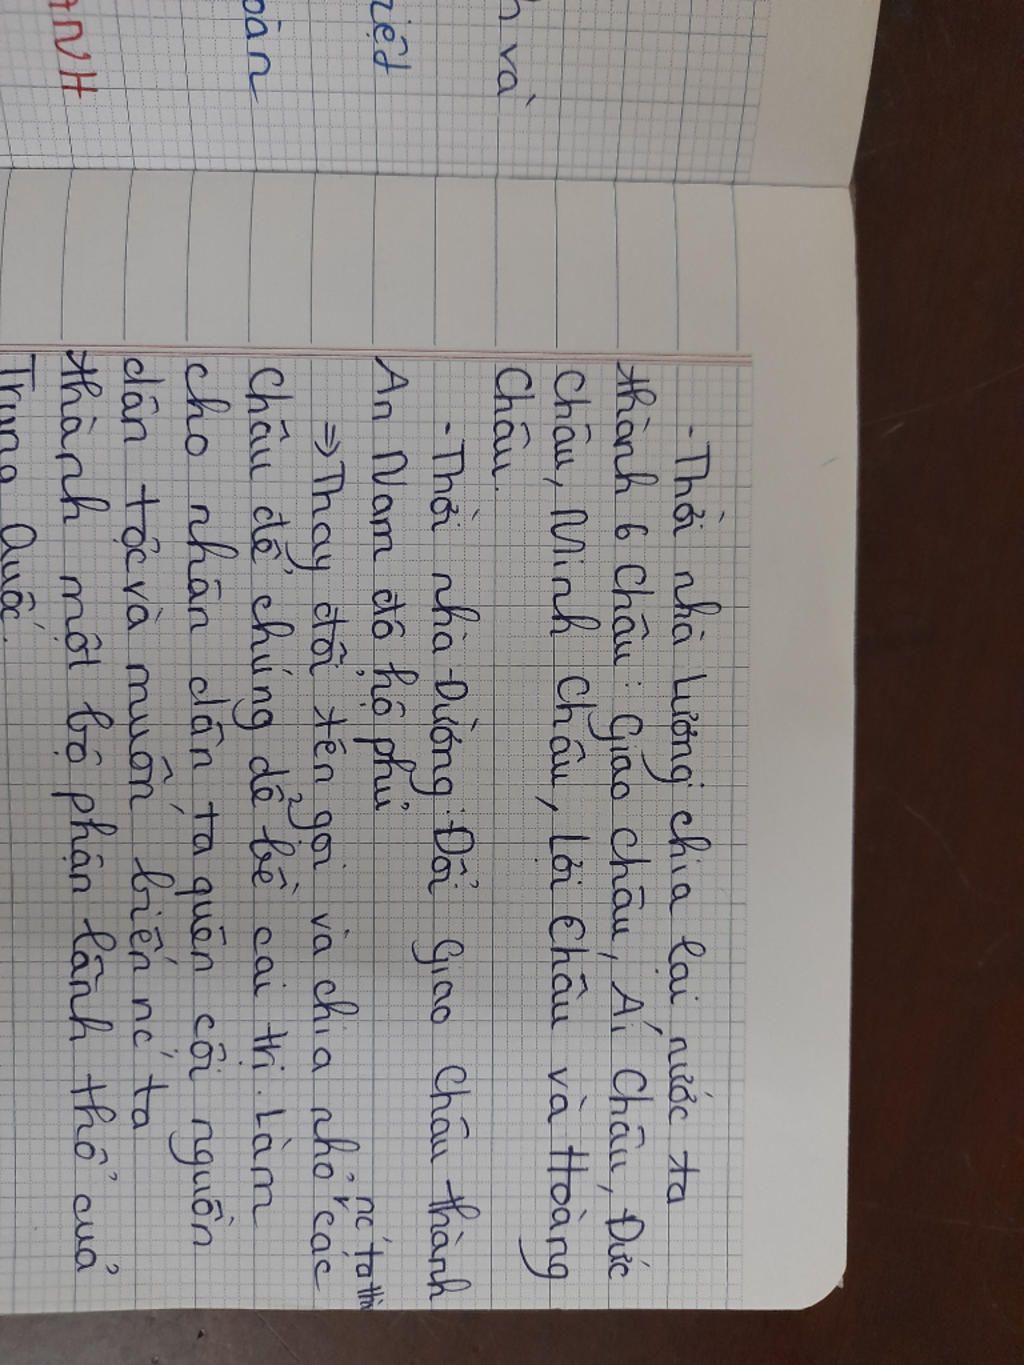 h và
iệt
oàn
ANH
- Thời nhà Lương chia lại nước ta
thành 6 Châu: Giao Châu, Ái Châu, Đức
Châu, Minh Châu, Lợi Châu và Hoàng
Châu.
- Thời nhà Đường: Đổi Giao Châu thành
An Nam đô hộ phủ
nc' ta thà
=> Thay đổi tên gọi và chia nhỏ các
Châu để chúng dễ bề cai trị. Làm
cho nhân dân ta quên cội nguồn
dân tộc và muốn biến nc' ta
thành một bộ phận lãnh thổ của
Trung Quốc.